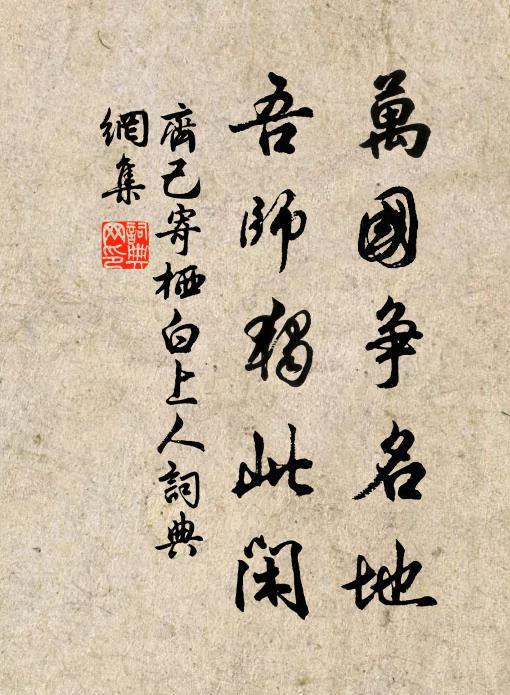 萬國爭名地
吾師獨此閑
齊己寄栖白上人詞典
網集
詞典
网印